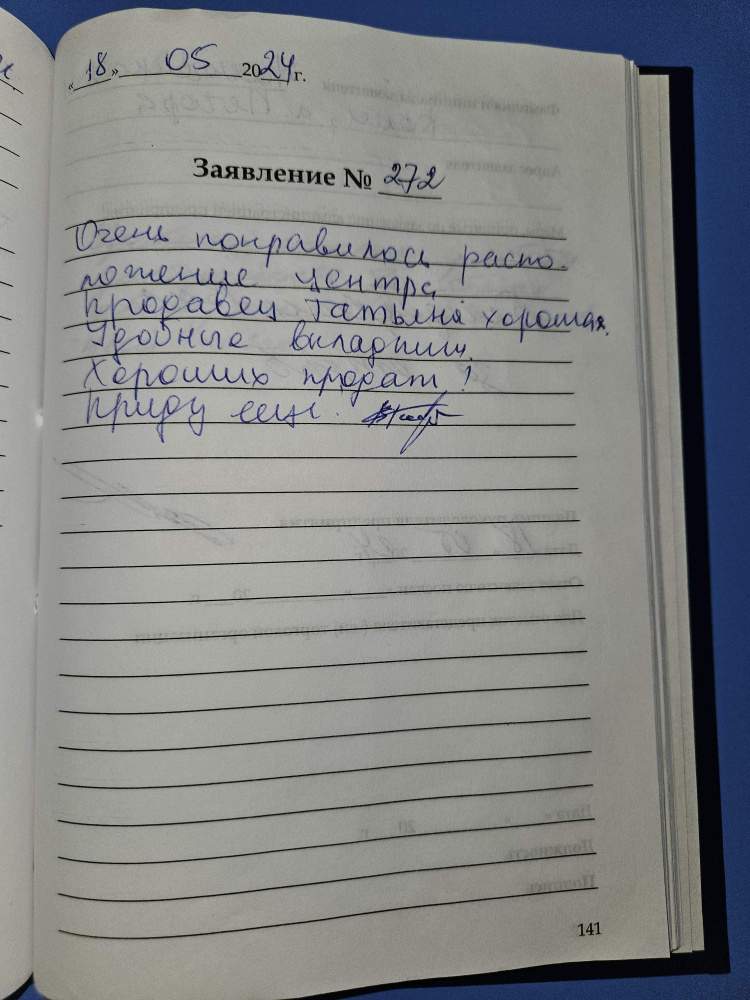 «18» 05 2024г.
Заявление № 272
Очень понравилось распо-
ложение центра,
продавец Татьяна хорошая.
Удобные вкладыши.
Хороших продаж!
Приду еще.
141